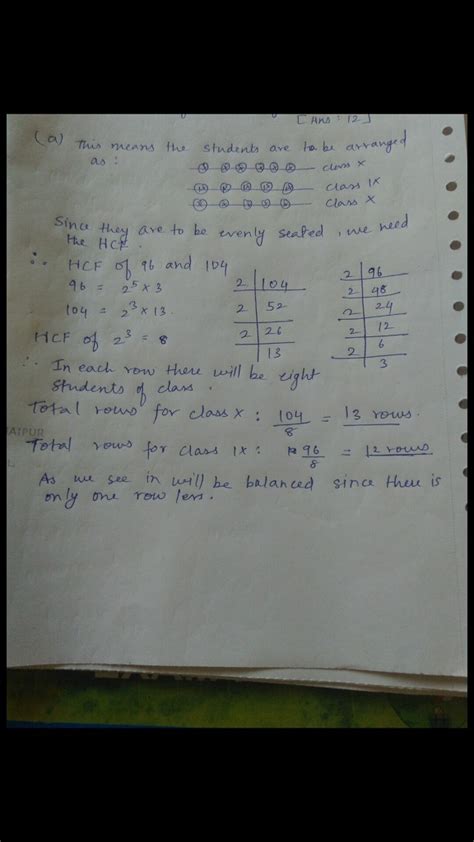 [Ans: 12]
(a) This means the students are to be arranged
as: class X
class IX
class X
Since they are to be evenly seated, we need
the HCF.
∴ HCF of 96 and 104
96 = 2⁵ × 3
104 = 2³ × 13.
HCF of 2³ = 8
2 | 104
2 | 52
2 | 26
13
2 | 96
2 | 48
2 | 24
2 | 12
2 | 6
3
∴ In each row there will be eight
students of class.
Total rows for class X : 104/8 = 13 rows.
Total rows for class IX : 96/8 = 12 rows
As we see in will be balanced since there is
only one row less.
JAIPUR